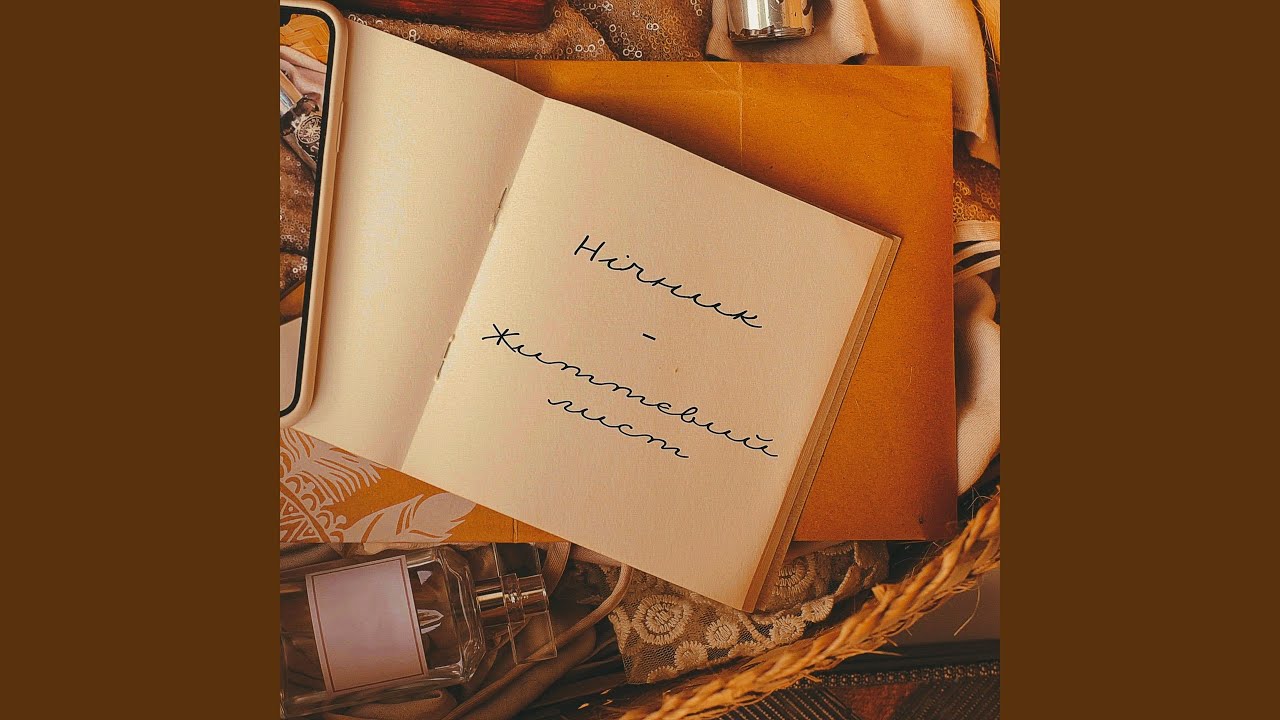 Нічник
-
Життєвий
лист